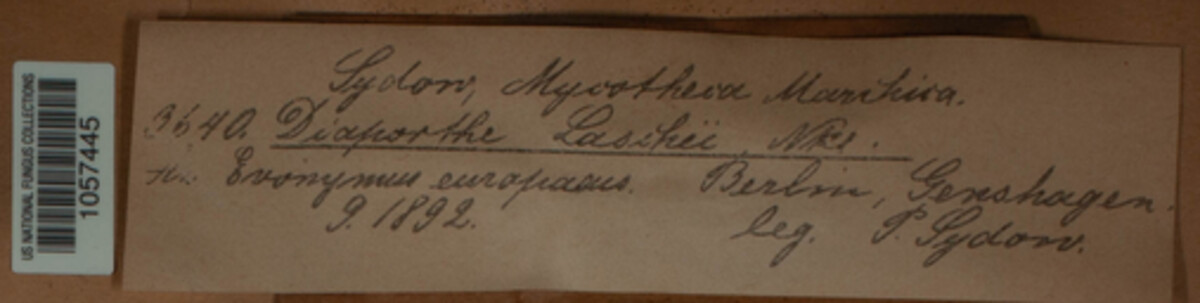 US NATIONAL FUNGUS COLLECTIONS
1057445
Sydow, Mycotheca Marchica.
3640. Diaporthe Laschii Nke.
Evonymus europaeus. Berlin, Genshagen.
9. 1892. leg. P. Sydow.